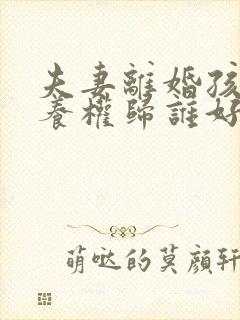 夫妻離婚孩
養權歸誰好
萌噠的莫顏軒